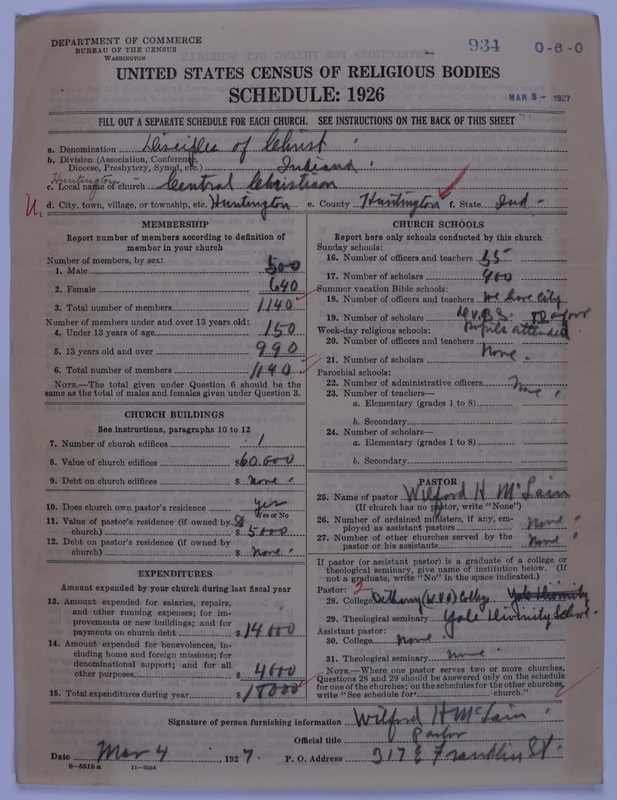 DEPARTMENT OF COMMERCE
BUREAU OF THE CENSUS
WASHINGTON
934 0-6-0
UNITED STATES CENSUS OF RELIGIOUS BODIES
SCHEDULE: 1926
MAR 8 - 1927
FILL OUT A SEPARATE SCHEDULE FOR EACH CHURCH. SEE INSTRUCTIONS ON THE BACK OF THIS SHEET
a. Denomination Disciples of Christ
b. Division (Association, Conference,
Diocese, Presbytery, Synod, etc.) Indiana
Huntington
c. Local name of church Central Christian
d. City, town, village, or township, etc. Huntington e. County Huntington f. State Ind -
MEMBERSHIP
Report number of members according to definition of
member in your church
Number of members, by sex:
1. Male 500
2. Female 640
3. Total number of members 1140
Number of members under and over 13 years old:
4. Under 13 years of age 150
5. 13 years old and over 990
6. Total number of members 1140
NOTE.—The total given under Question 6 should be the
same as the total of males and females given under Question 3.
CHURCH BUILDINGS
See instructions, paragraphs 10 to 12
7. Number of church edifices 1
8. Value of church edifices $60.000
9. Debt on church edifices $ None
10. Does church own pastor's residence Yes
Yes or No
11. Value of pastor's residence (if owned by
church) $ 5000
12. Debt on pastor's residence (if owned by
church) $ None
EXPENDITURES
Amount expended by your church during last fiscal year
13. Amount expended for salaries, repairs,
and other running expenses; for im-
provements or new buildings; and for
payments on church debt $ 14000
14. Amount expended for benevolences, in-
cluding home and foreign missions; for
denominational support; and for all
other purposes $ 4000
15. Total expenditures during year $ 18000
CHURCH SCHOOLS
Report here only schools conducted by this church
Sunday schools:
16. Number of officers and teachers 55
17. Number of scholars 900
Summer vacation Bible schools:
18. Number of officers and teachers We have city
19. Number of scholars D.V.B.S. of our
Week-day religious schools: pupils attended
20. Number of officers and teachers
None
21. Number of scholars
Parochial schools:
22. Number of administrative officers None
23. Number of teachers—
a. Elementary (grades 1 to 8)
b. Secondary
24. Number of scholars—
a. Elementary (grades 1 to 8)
b. Secondary
PASTOR
25. Name of pastor Wilford H McLain
(If church has no pastor, write "None")
26. Number of ordained ministers, if any, em-
ployed as assistant pastors None
27. Number of other churches served by the
pastor or his assistants None
If pastor (or assistant pastor) is a graduate of a college or
theological seminary, give name of institution below. (If
not a graduate, write "No" in the space indicated.)
Pastor: 2
28. College Bethany (W.Va) College Yale Divinity
29. Theological seminary Yale Divinity School
Assistant pastor:
30. College None
31. Theological seminary None
NOTE.—Where one pastor serves two or more churches,
Questions 28 and 29 should be answered only on the schedule
for one of the churches; on the schedules for the other churches,
write "See schedule for church."
Signature of person furnishing information Wilford H McLain
Official title Pastor
Date Mar 4, 1927. P. O. Address 317 E Franklin St.
8—5318 a 11—9264